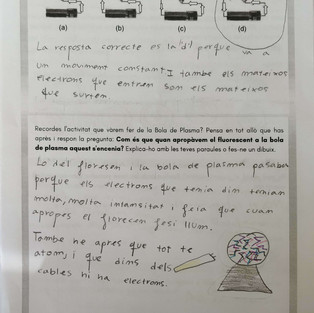 (a) (b) (c) (d)
La resposta correcte es la 'd' perque va a
un moviment constant I tambe els mateixos
electrons que entren son els mateixos
que surten
Recordes l'activitat que varem fer de la Bola de Plasma? Pensa en tot allò que has
après i respon la pregunta: Com és que quan apropàvem el fluorescent a la bola
de plasma aquest s'encenia? Explica-ho amb les teves paraules o fes-ne un dibuix.
Lo del floresen i la bola de plasma pasaba
perque els electrons que tenia din tenian
molta, molta intansitat i feia que cuan
apropes el florecen fesi llum.
Tambe he apres que tot te
atom, i que dins dels
cables hi ha electrons.